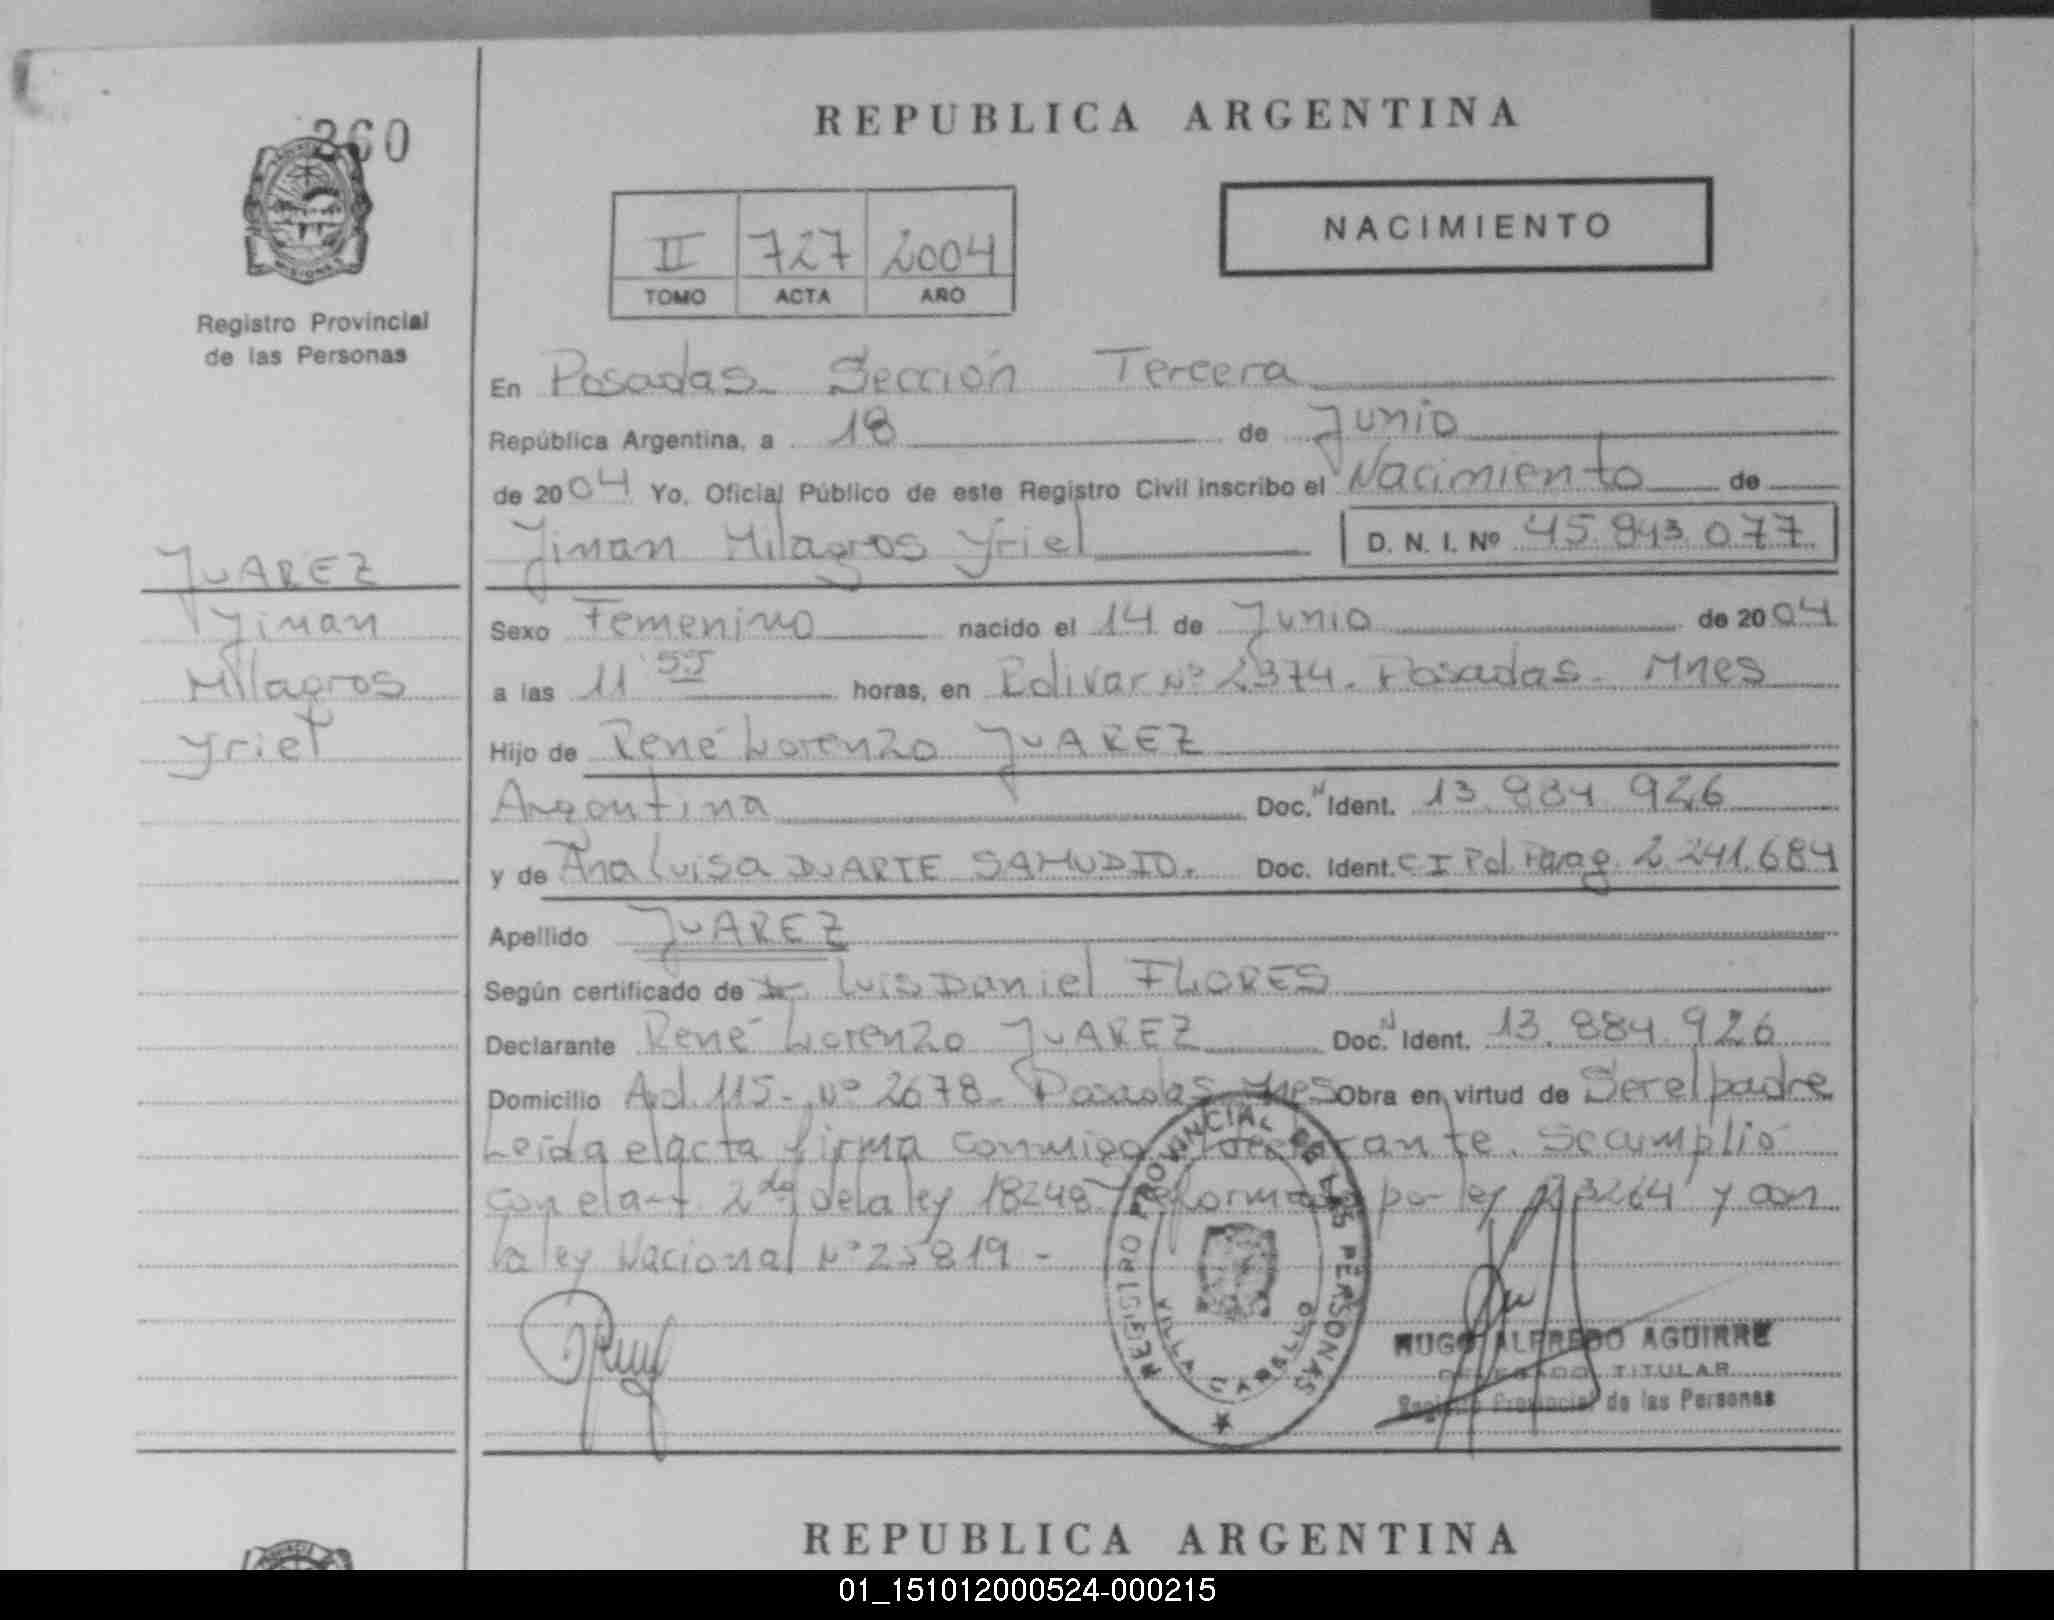 REPUBLICA ARGENTINA
360
MISIONES
Registro Provincial
de las Personas
II 727 2004
TOMO ACTA AÑO
NACIMIENTO
En Posadas Sección Tercera
República Argentina, a 18 de Junio
de 2004 Yo, Oficial Público de este Registro Civil inscribo el Nacimiento de
Jinan Milagros Yriel D. N. I. Nº 45.843.077
JUAREZ
Jinan
Milagros
Yriel
Sexo Femenino nacido el 14 de Junio de 2004
a las 11 55 horas, en Bolivar Nº 2374. Posadas - Mnes
Hijo de René Lorenzo JUAREZ
Argentina Doc. N Ident. 13.884.926
y de Ana Luisa DUARTE SAMUDIO. Doc. Ident. C I Pol. Parag. 2.241.684
Apellido JUAREZ
Según certificado de Dr. Luis Daniel FLORES
Declarante René Lorenzo JUAREZ Doc. N Ident. 13.884.926
Domicilio Ad. 115 - Nº 2678 - Posadas Mnes Obra en virtud de Ser el padre
Leída el acta firma conmigo declarante. Se cumplió
con el art. 2do de la ley 18248 reformado por ley 23264 y con
la ley Nacional Nº 25819 -
REGISTRO PROVINCIAL DE LAS PERSONAS
VILLA CABELLO
HUGO ALFREDO AGUIRRE
DELEGADO TITULAR
Registro Provincial de las Personas
REPUBLICA ARGENTINA
01_151012000524-000215